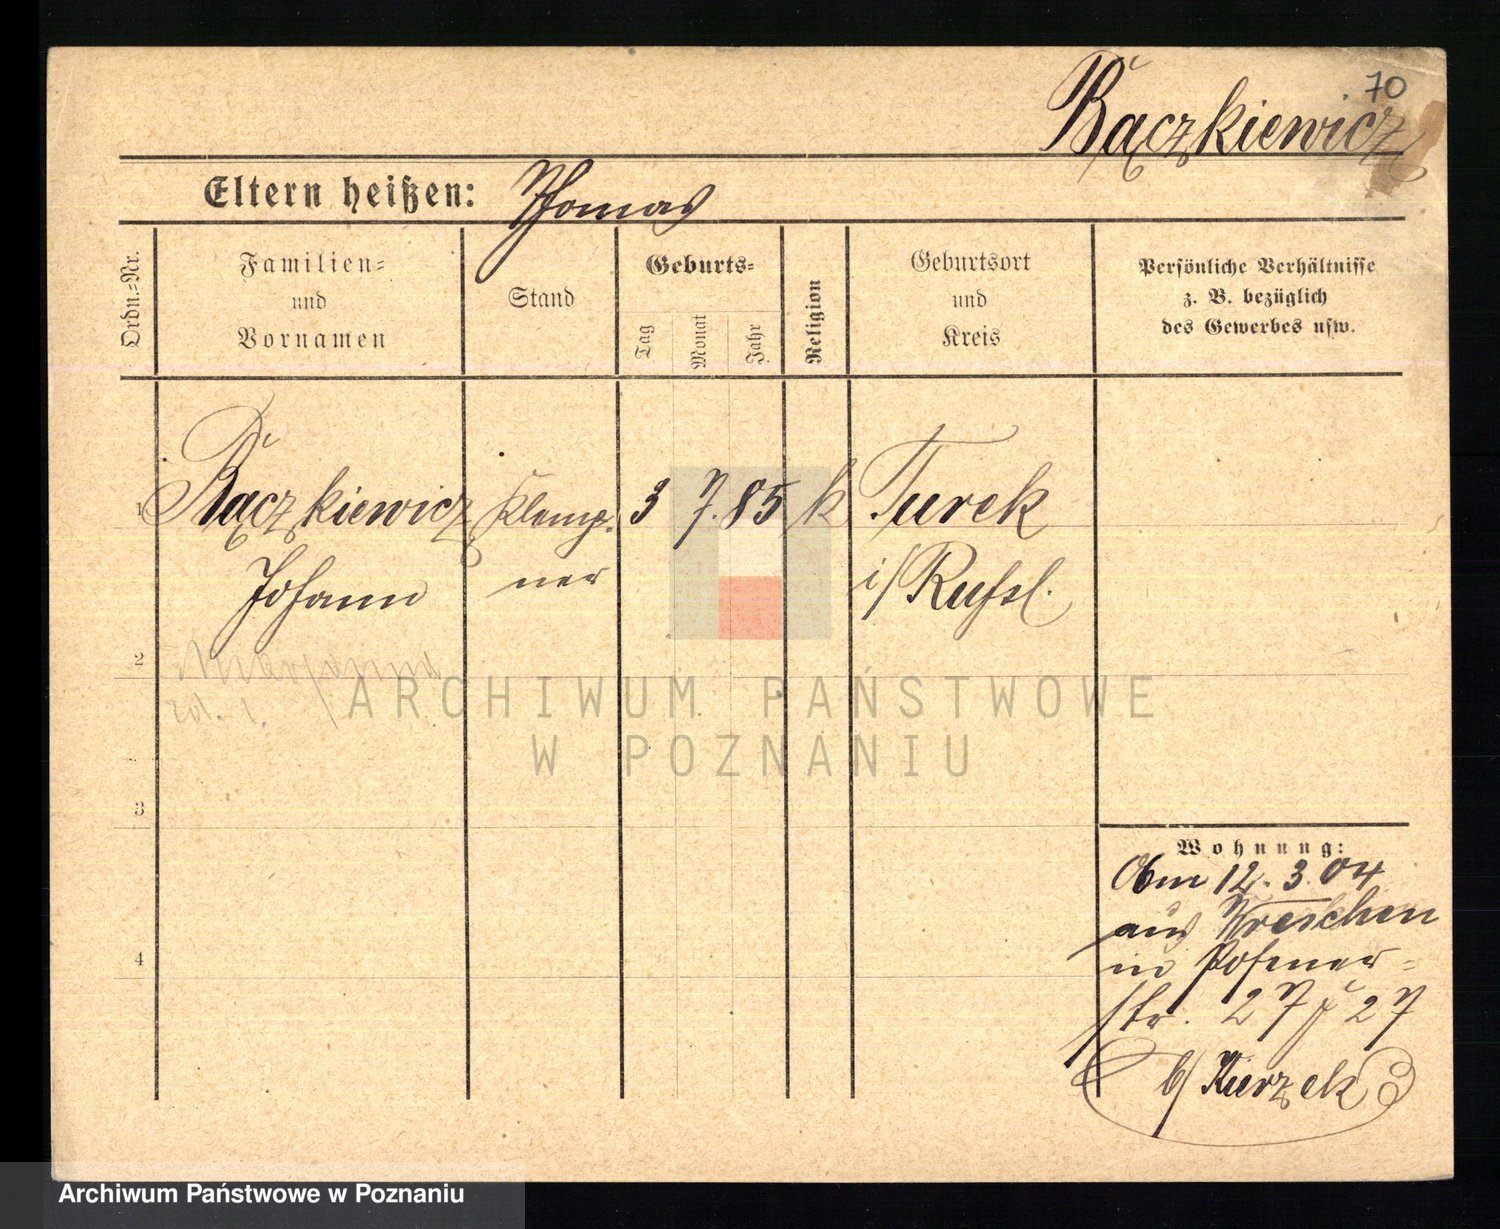 70
Bączkiewicz
Eltern heißen: Thomas
Ordn.-Nr.
Familien-
und
Vornamen
Stand
Geburts-
Tag
Monat
Jahr
Religion
Geburtsort
und
Kreis
Persönliche Verhältnisse
z. B. bezüglich
des Gewerbes usw.
1 Bączkiewicz Klemp- 3 7. 85 k Turek
Johann ner i/ Russl.
2
3
4
Wohnung:
12. 3. 04
aus Wreschen
in Posener-
str. 27 27
b/ Kierzek
ARCHIWUM PAŃSTWOWE
W POZNANIU
Archiwum Państwowe w Poznaniu